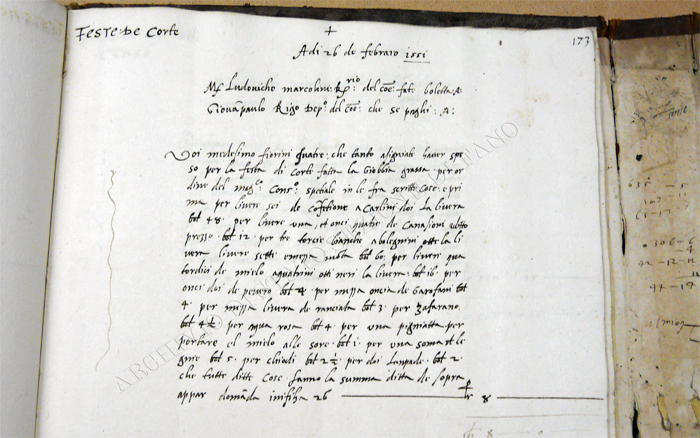 Feste de Corte
+
A di 26 de febraro 1551
173
Mr Ludovicho marcolini Rrio del coe fate boletta a
Giovampaulo Rigo Depo del coe che se paghi A
Voi medesimo fiorini quatre che tanto asignate haver spe
so per la festa di Corte fatta la Giobbia grassa per or
dine del mago Conso spetiale in le fra scritte cose e pri
ma per livere sei de cofetione a Carlini doi la livera
bol 48 per livere una et onci quatre de
prezzo bol 12 per tre torcie bianche a bolegnini otto la li
vera livere sette emezza monta bol 60 per livere qua
tordici de miele aquatrini otti neri la livera bol 16 per
onci doi de pevere bol 4 per mezza oncia de Garofani bol
4 per mezza livera de ranciata bol 3 per Zafarano
bol 4½ per aqua rosa bol 4 per una pigniatta per
portare el miele alle sore bol 1 per una soma de le
gnie bol 5 per chiodi bol 2½ per doi lanpade bol 2
che tutte ditte cose fanno la summa ditta de sopra
appar domãda infilza 26 8
ARCHIVIO